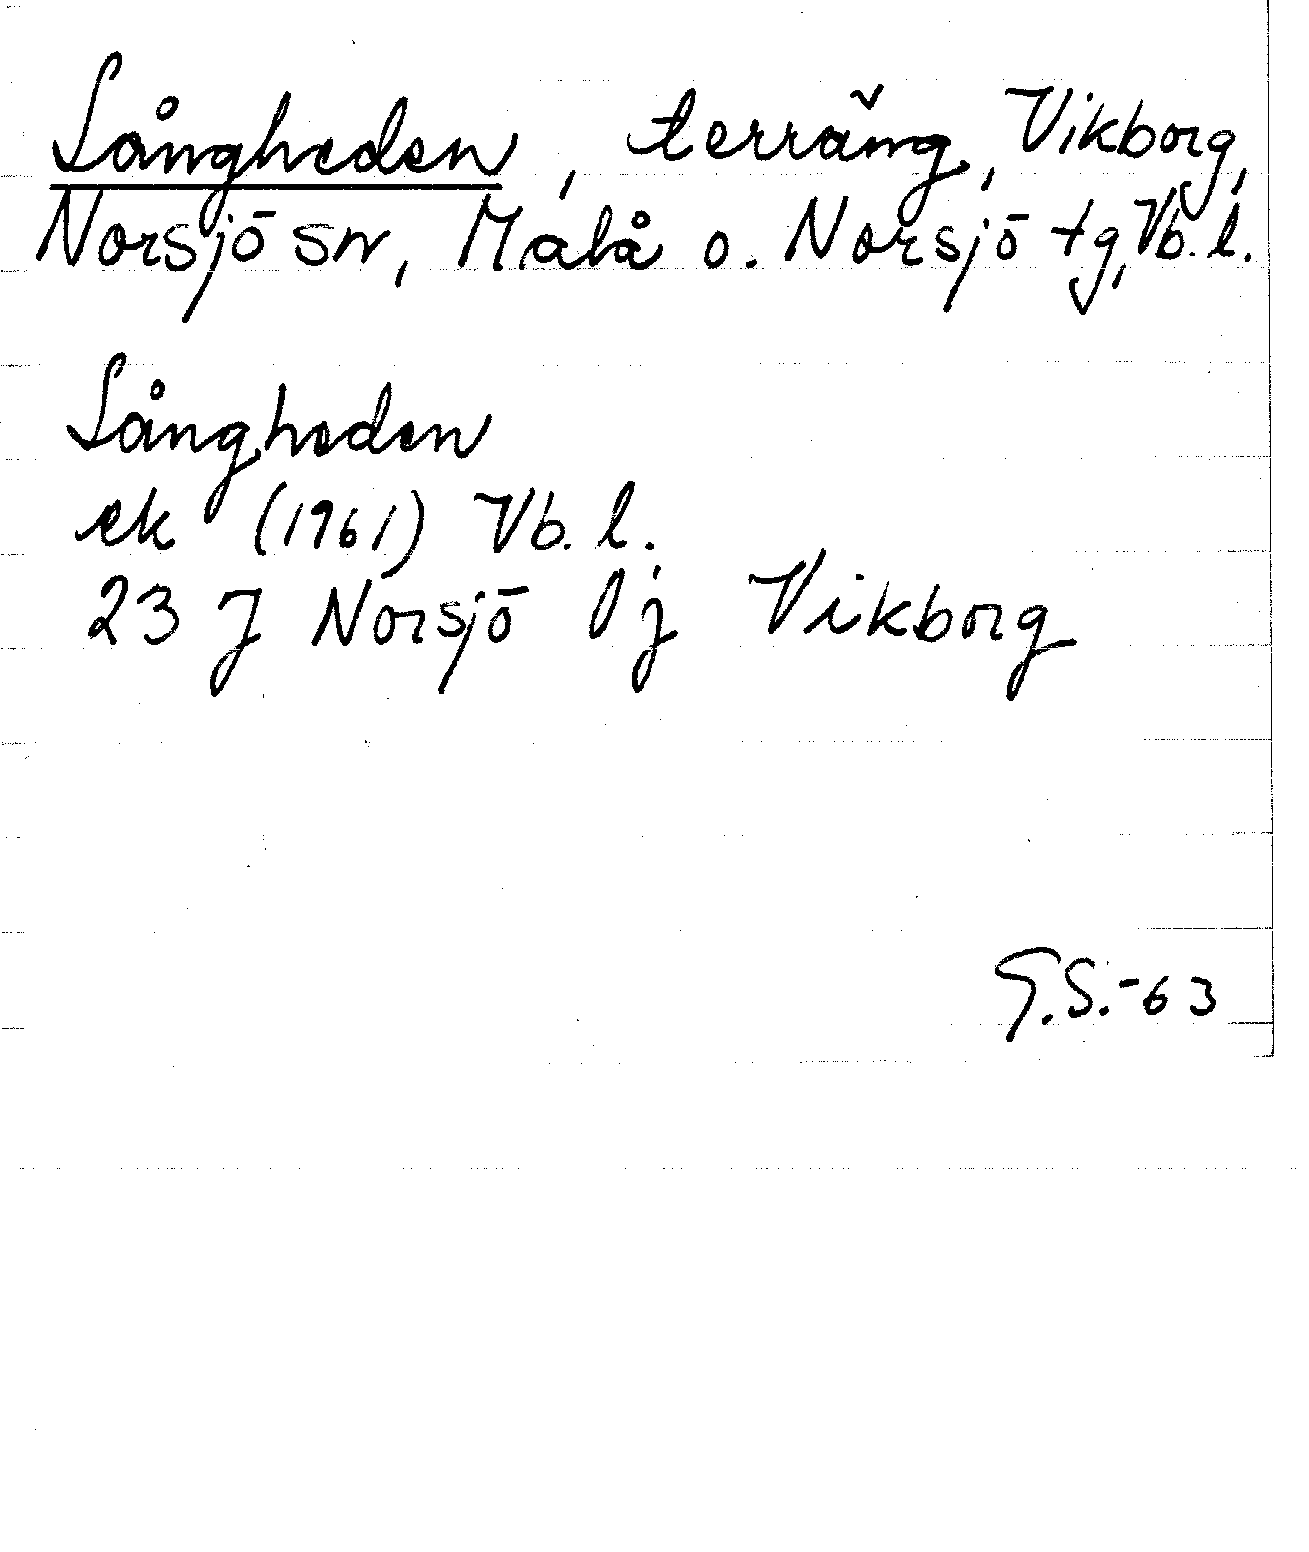 Långheden, terräng, Vikborg,
Norsjö sn, Malå o. Norsjö tg, Vb. l.
Långheden
ek (1961) Vb. l.
23 J Norsjö 0 j Vikborg
G.S.-63